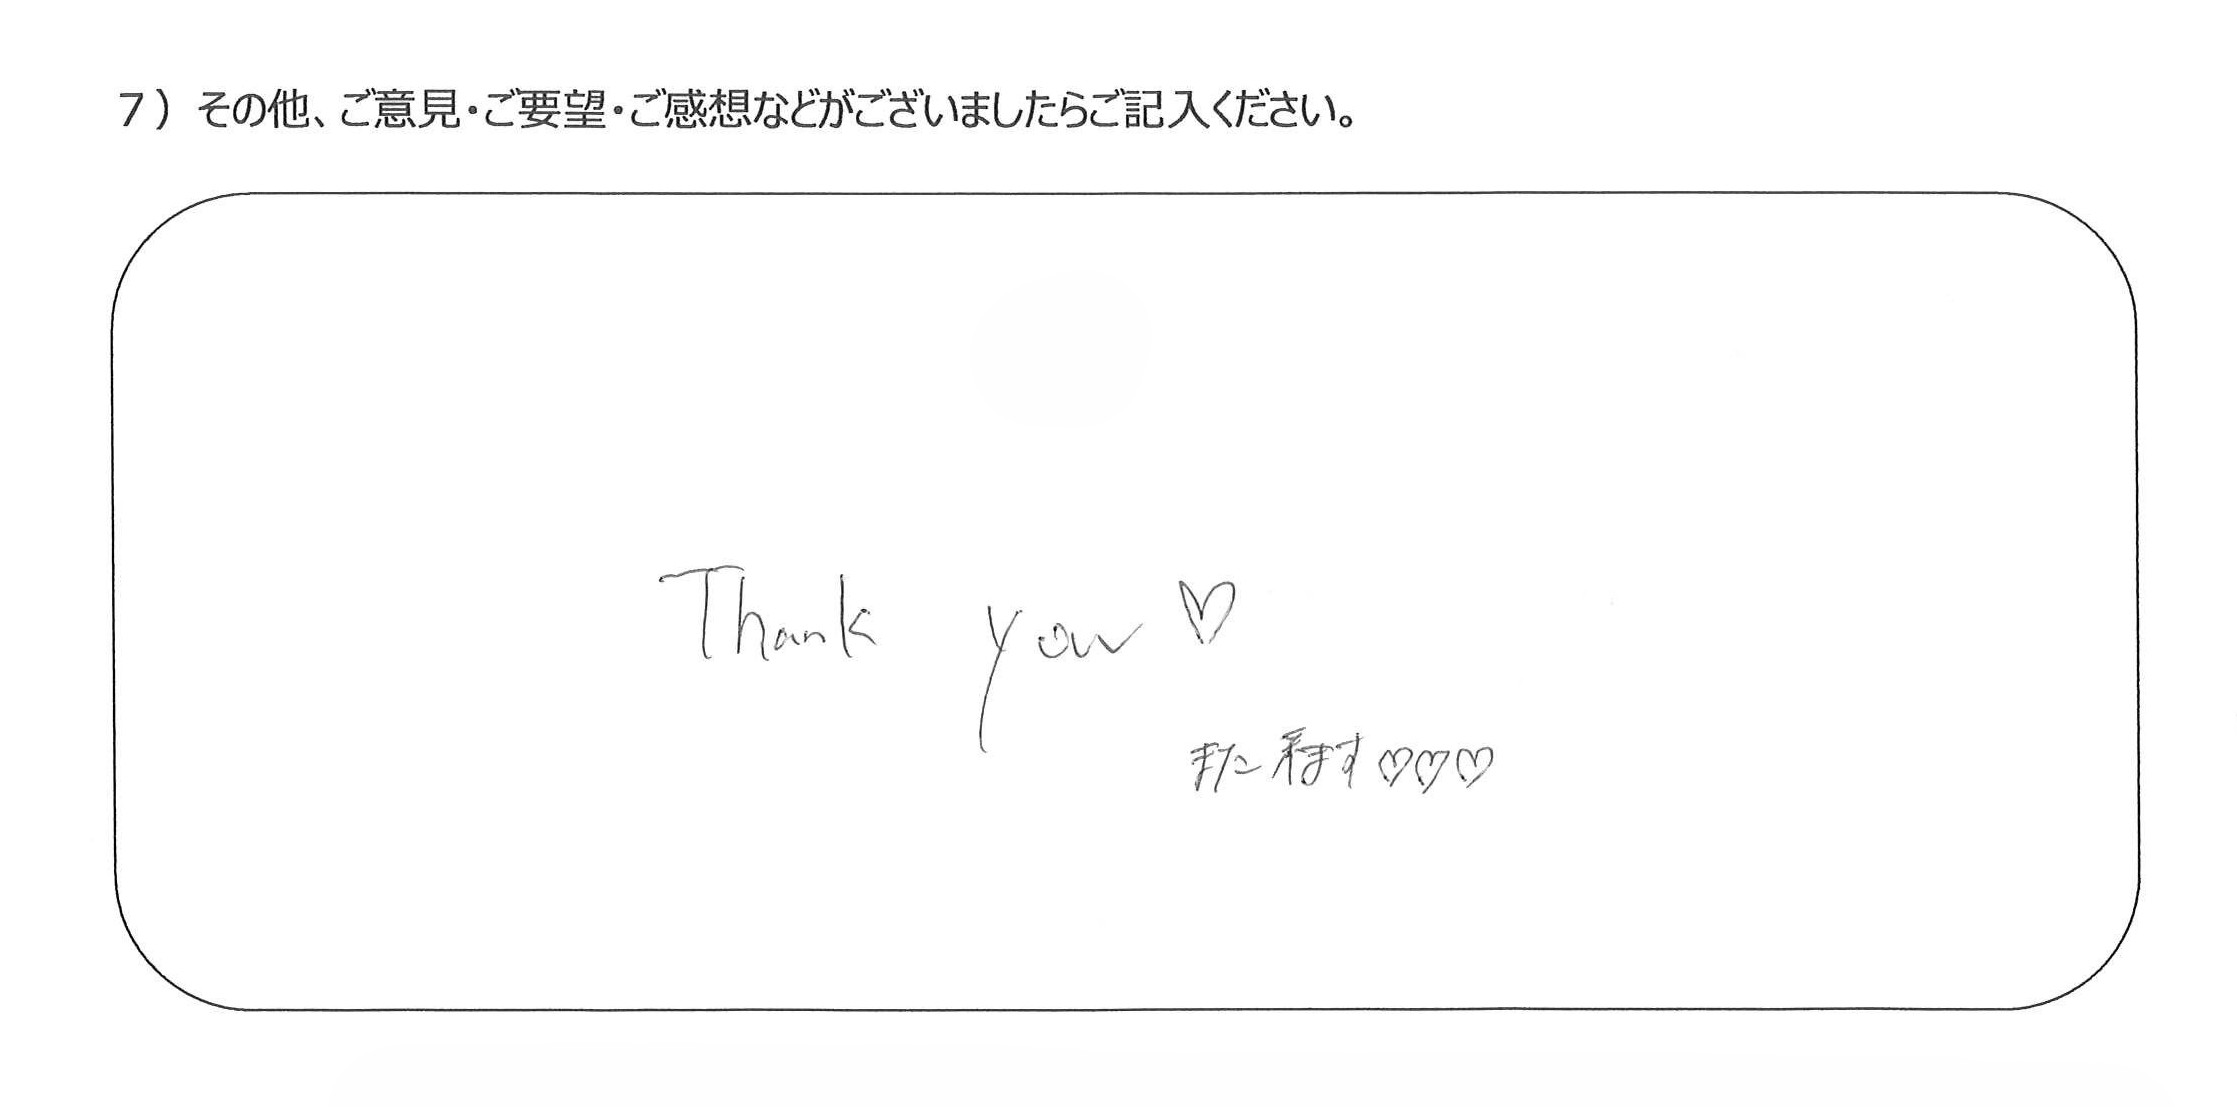 7）その他、ご意見・ご要望・ご感想などがございましたらご記入ください。
Thank you♡
また来ます♡♡♡